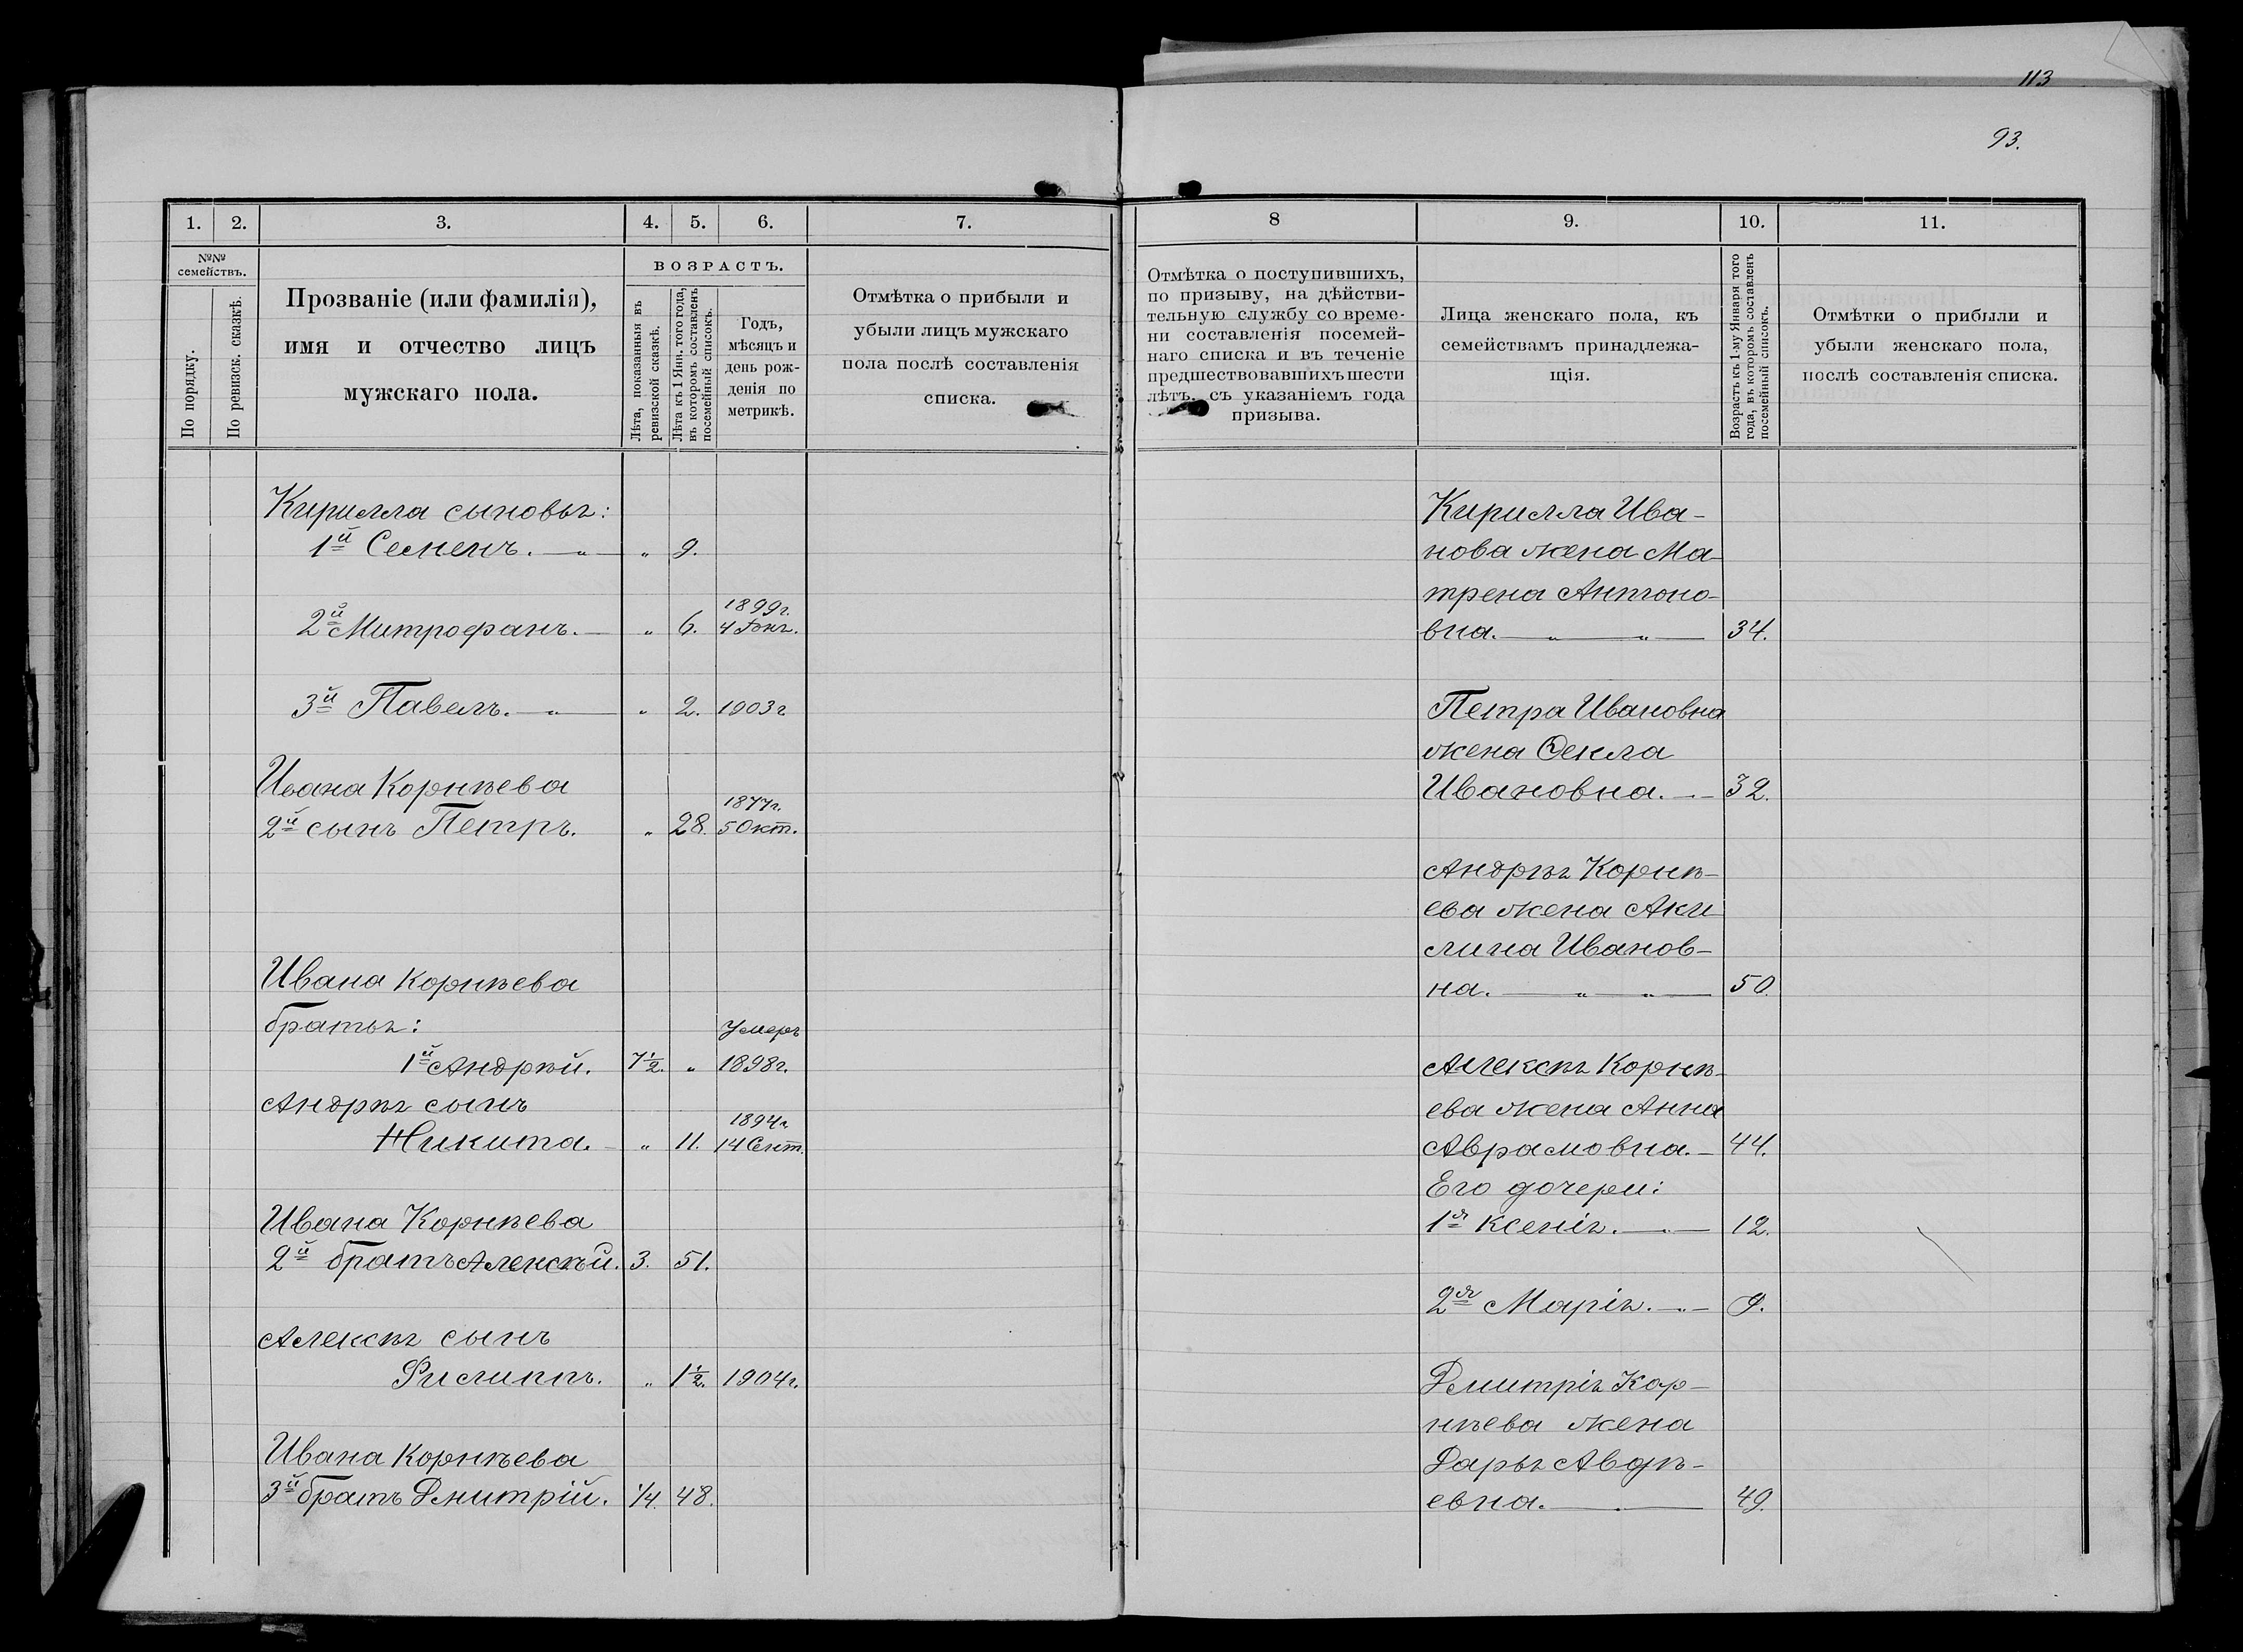 113
93.
1. 2. 3. 4. 5. 6. 7.
№№ семействъ.
По порядку.
По ревизск. сказкѣ.
Прозваніе (или фамилія),
имя и отчество лицъ
мужскаго пола.
ВОЗРАСТЪ.
Лѣта, показанныя въ
ревизской сказкѣ.
Лѣта къ 1 Янв. того года,
въ которомъ составленъ
посемейный списокъ.
Годъ,
мѣсяцъ и
день рож-
денія по
метрикѣ.
Отмѣтка о прибыли и
убыли лицъ мужскаго
пола послѣ составленія
списка.
Кирилла сыновья:
1й Семенъ. — „ — „ 9.
1899г.
2й Митрофанъ. — „ 6. 4
3й Павелъ. — „ — „ 2. 1903г
Ивана Корнѣева
1877г.
2й сынъ Петръ. „ 28. 5 Окт.
Ивана Корнѣева
братья: Умеръ
1й Андрѣй. 7½. „ 1898г.
Андрѣя сынъ
1894г.
Никита. — „ 11. 14 Сент.
Ивана Корнѣева
2й братъ Алексѣй. 3. 51.
Алексѣя сынъ
Филиппъ. „ 1½. 1904г.
Ивана Корнѣева
3й братъ Дмитрій. ¼. 48.
8 9. 10. 11.
Отмѣтка о поступившихъ,
по призыву, на дѣйстви-
тельную службу со време-
ни составленія посемей-
наго списка и въ теченіе
предшествовавшихъ шести
лѣтъ, съ указаніемъ года
призыва.
Лица женскаго пола, къ
семействамъ принадлежа-
щія.
Возрастъ къ 1-му Января того
года, въ которомъ составленъ
посемейный списокъ.
Отмѣтки о прибыли и
убыли женскаго пола,
послѣ составленія списка.
Кирилла Ива-
нова жена Ма-
трена Антоно-
вна. — „ — „ — 34.
Петра Ивановна
жена Ѳекла
Ивановна. — 32.
Андрѣя Корнѣ-
ева жена Аки
лина Иванов-
на. — „ — „ — 50.
Алексѣя Корнѣ-
ева жена Анна
Аврамовна. — 44.
Его дочери:
1я Ксенія. — „ — 12.
2я Марія. — „ — 9.
Дмитрія Кор-
нѣева жена
Дарья Авдѣ-
евна. — „ — 49.